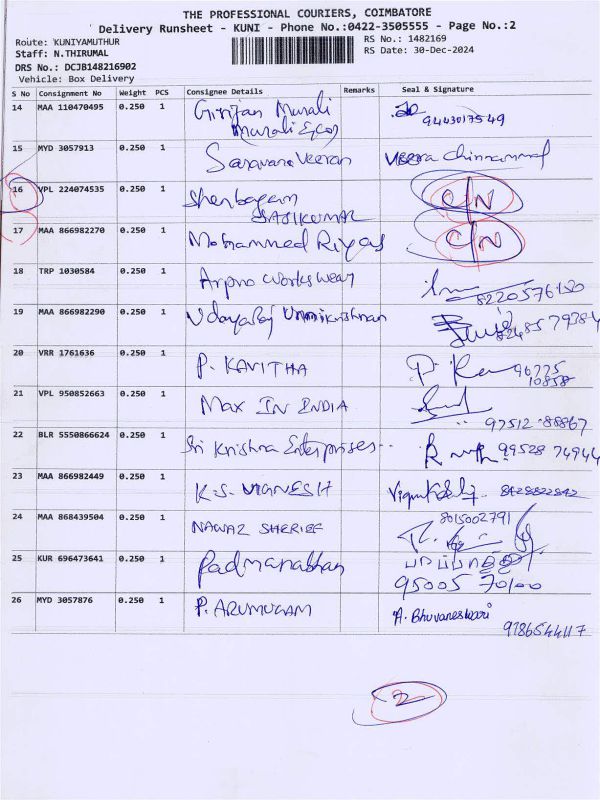 THE PROFESSIONAL COURIERS, COIMBATORE
Delivery Runsheet - KUNI - Phone No.:0422-3505555 - Page No.:2
Route: KUNIYAMUTHUR RS No.: 1482169
Staff: N.THIRUMAL RS Date: 30-Dec-2024
DRS No.: DCJB148216902
Vehicle: Box Delivery
S No Consignment No Weight PCS Consignee Details Remarks Seal & Signature
14 MAA 110470495 0.250 1 Girijan Murali
Murali 9443017549
15 MYD 3057913 0.250 1 Saravana Veeran Veera Chinnammal
16 VPL 224074535 0.250 1 Shenbagam C/N
SASIKUMAR
17 MAA 866982270 0.250 1 Mohammed Riyas C/N
18 TRP 1030584 0.250 1 Arpno workswear
8220576180
19 MAA 866982290 0.250 1 Udayaraj Unnikrishnan
20 VRR 1761636 0.250 1 P. KAVITHA P. 96775
10858
21 VPL 950852663 0.250 1 MAX IN INDIA
97512 88867
22 BLR 5550866624 0.250 1 Sri Krishna Enterprises 99528 74944
23 MAA 866982449 0.250 1 K.S. VIGNESH
24 MAA 868439504 0.250 1 NAWAZ SHERIEF 8015002791
25 KUR 696473641 0.250 1 Padmanabhan
95005 70100
26 MYD 3057876 0.250 1 P. ARUMUGAM A. Bhuvaneswari
9786544117
2